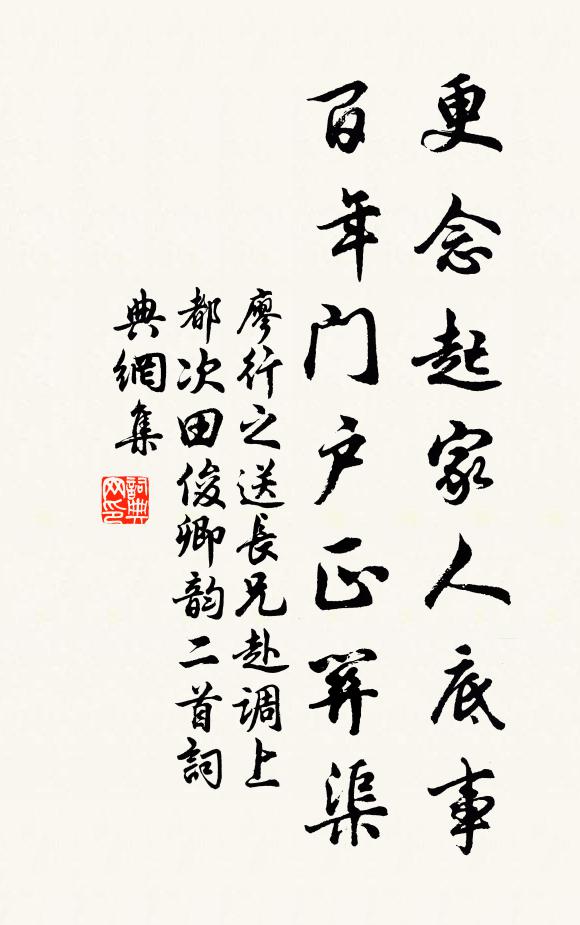 更念起家人底事
百年门户正关渠
廖行之送長兄赴调上
都次田俊卿韵二首詞
典網集
詞典网印